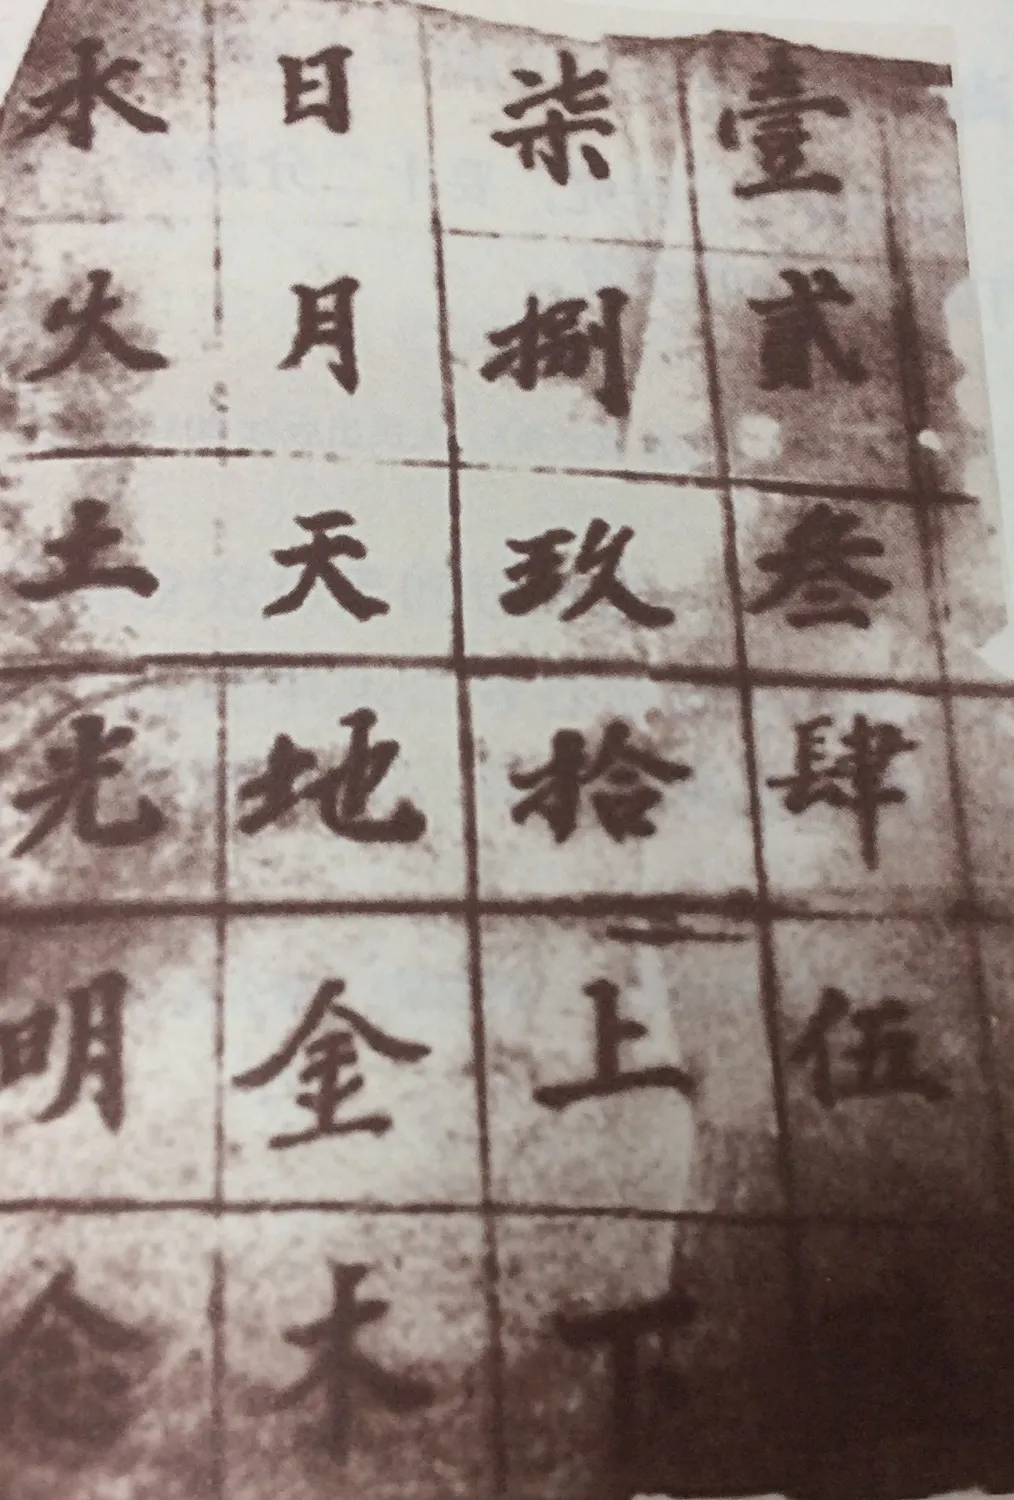 壹貳叁肆伍
柒捌玖拾上下
日月天地金木
水火土光明